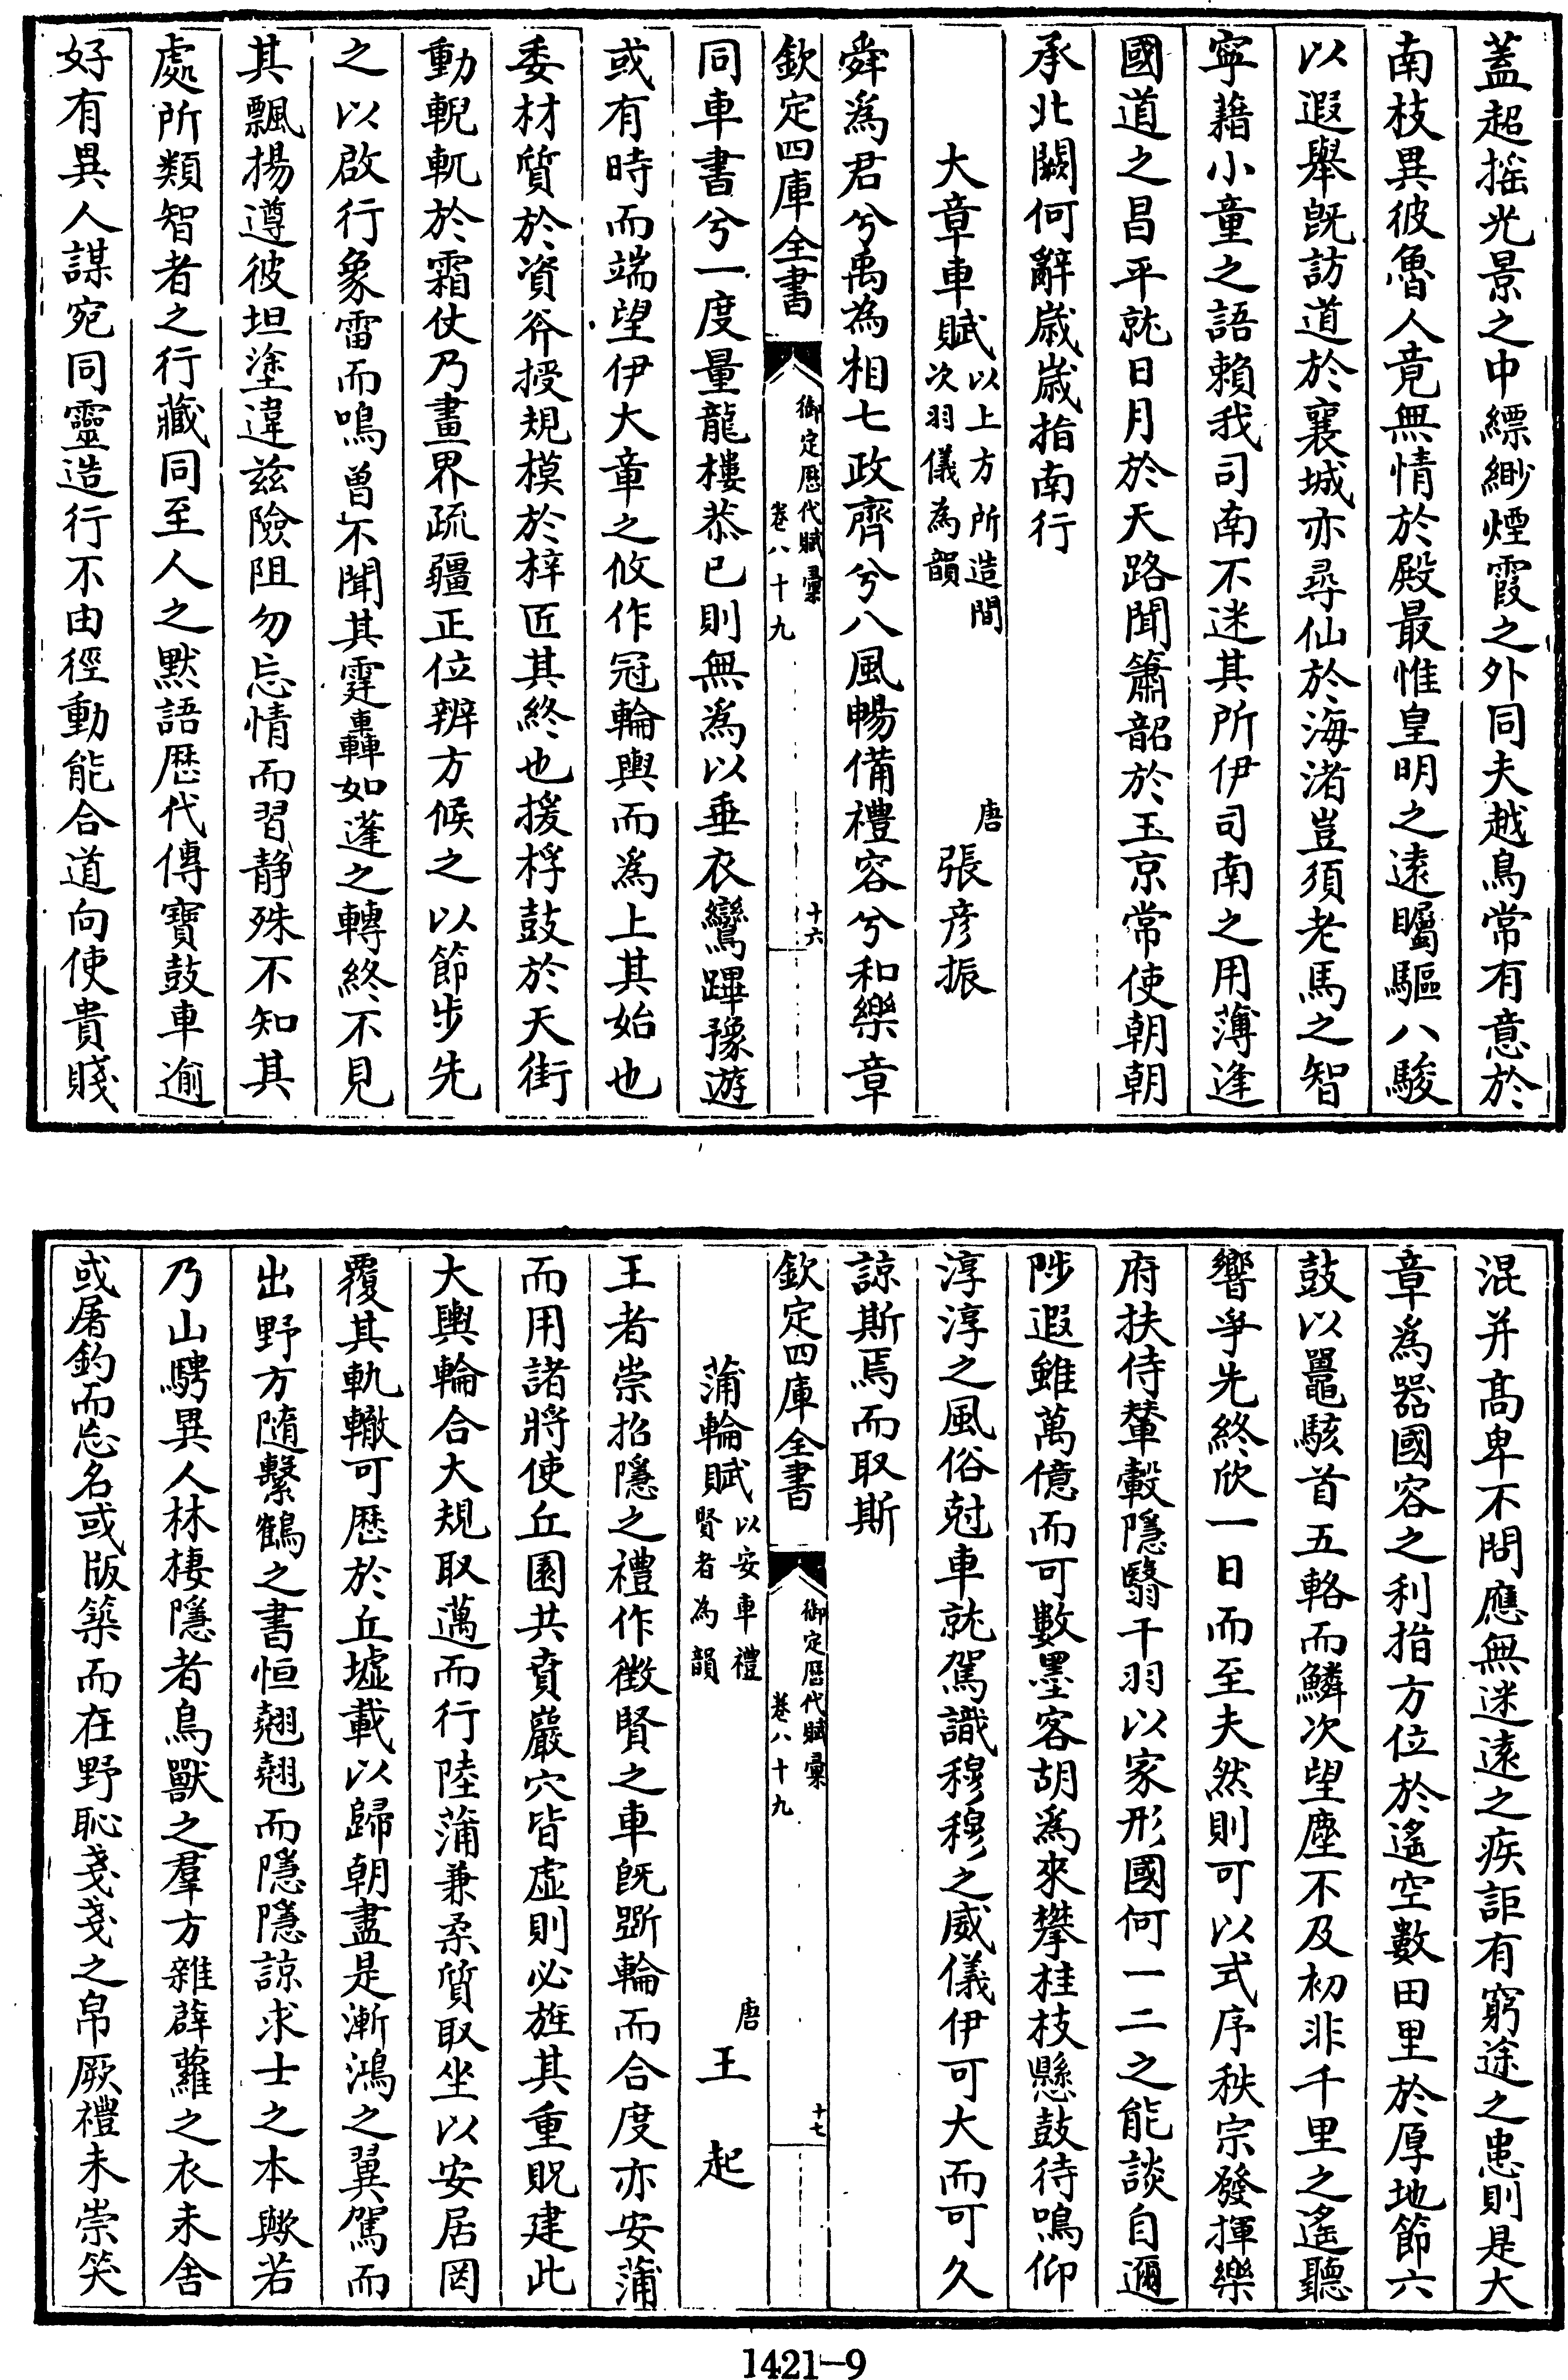 蓋超搖光景之中縹緲煙霞之外同夫越鳥常有意於
南枝異彼魯人竟無情於殿最惟皇明之遠矚驅八駿
以遐舉旣訪道於襄城亦尋仙於海渚豈須老馬之智
寧藉小童之語賴我司南不迷其所伊司南之用薄逢
國道之昌平就日月於天路聞簫韶於玉京常使朝朝
承北闕何辭歲歲指南行
大章車賦以上方所造間次羽儀為韻 唐 張彦振
舜為君兮禹為相七政齊兮八風暢備禮容兮和樂章
欽定四庫全書 御定歴代賦彙 卷八十九 十六
同車書兮一度量龍樓恭已則無為以垂衣鸞蹕豫遊
或有時而端望伊大章之攸作冠輪輿而為上其始也
委材質於資斧授規模於梓匠其終也援桴鼓於天街
動輗軏於霜仗乃畫界疏疆正位辨方候之以節步先
之以啟行象雷而鳴曾不聞其霆轟如蓬之轉終不見
其飄揚遵彼坦塗違兹險阻勿忘情而習静殊不知其
處所類智者之行藏同至人之黙語歴代傳寶鼓車逾
好有異人謀宛同靈造行不由徑動能合道向使貴賤
混并髙卑不問應無迷逺之疾詎有窮途之患則是大
章為器國容之利指方位於遙空數田里於厚地節六
鼓以鼉駭首五輅而鱗次望塵不及初非千里之遙聽
響爭先終欣一日而至夫然則可以式序秩宗發揮樂
府扶侍輦轂隱翳干羽以家形國何一二之能談自邇
陟遐雖萬億而可數墨客胡為來攀桂枝懸鼓待鳴仰
淳淳之風俗尅車就駕識穆穆之威儀伊可大而可久
諒斯焉而取斯
欽定四庫全書 御定歴代賦彙 卷八十九 十七
蒲輪賦以安車禮賢者為韻 唐 王起
王者崇招隱之禮作徴賢之車旣斵輪而合度亦安蒲
而用諸將使丘園共賁巖穴皆虚則必旌其重貺建此
大輿輪合大規取邁而行陸蒲兼柔質取坐以安居罔
覆其軌轍可歴於丘墟載以歸朝盡是漸鴻之翼駕而
出野方隨繫鶴之書恒翹翹而隱隱諒求士之本歟若
乃山騁異人林棲隱者鳥獸之羣方雜薜蘿之衣未舍
或屠釣而忘名或版築而在野恥戔戔之帛厥禮未崇笑